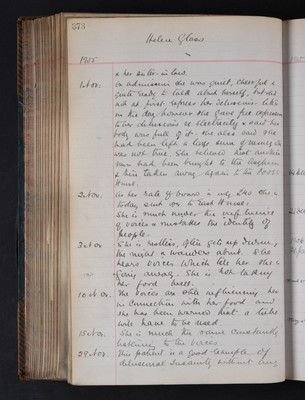 373
Helen Glass
1905
& her sister-in-law.
1st Nov. On admission she was quiet, cheerful &
quite ready to talk about herself, but she
did not at first express her delusions. Later
in the day however she gave free expression
to her delusions re electricity & said her
body was full of it. She also said she
had been left a large sum of money which
was not true. She believed that another
man had been brought to the Asylum
& then taken away again to the Poor
House.
2 Nov. As her rate of board is only £40 she is
today sent over to East House.
She is much under the influence
of voices & mistakes the identity of
people.
3 Nov She is restless, often gets up during
the night & wanders about & she
hears voices which tell her she is
going away. She is not taking
her food well.
10 Nov. The voices are still influencing her
in connection with her food and
she has been warned that a tube
will have to be used.
15 Nov. She is much the same constantly
listening to the voices.
29 Nov This patient is a good example of
delusional insanity without any